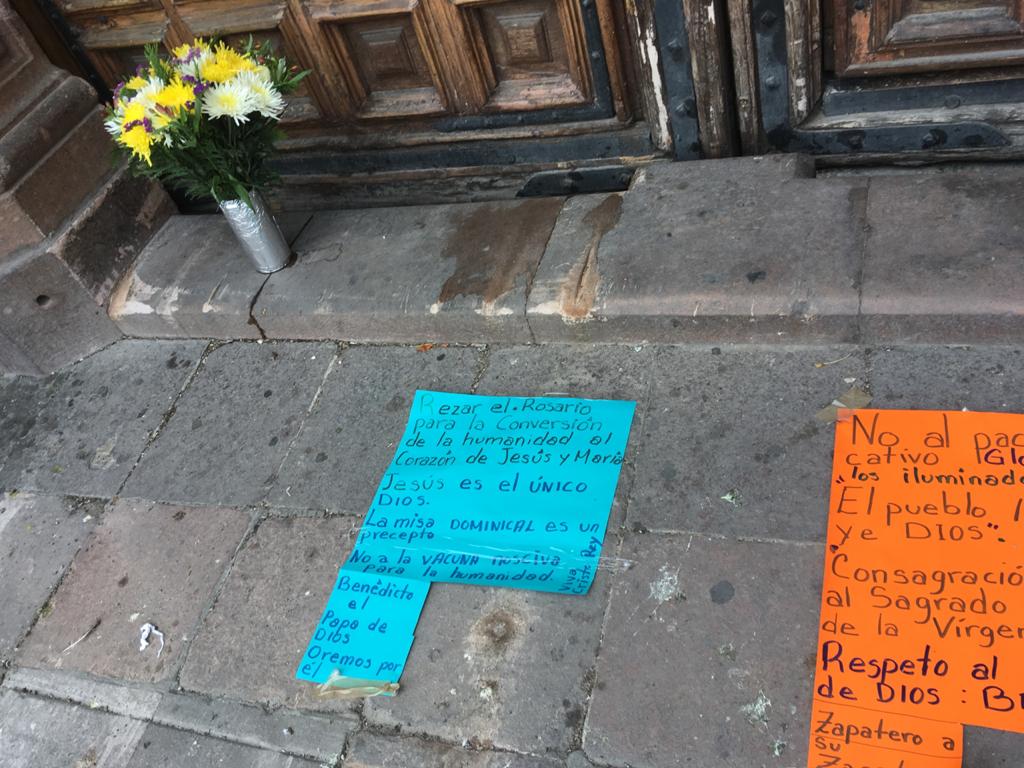 Rezar el Rosario
para la Conversión
de la humanidad al
Corazón de Jesús y María
Jesús es el ÚNICO
DIOS.
La misa DOMINICAL es un
precepto
No a la VACUNA
para la humanidad.
Viva
Cristo Rey
Benedicto
el
Papa de
DIOS
Oremos por
él
No al
cativo
"los iluminad
"El pueblo
ye DIOS".
Consagració
al Sagrado
de la Virgen
Respeto al
de DIOS :
Zapatero a
su